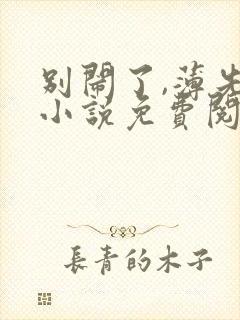 别鬧了,薄先
小說免費閱
長青的木子